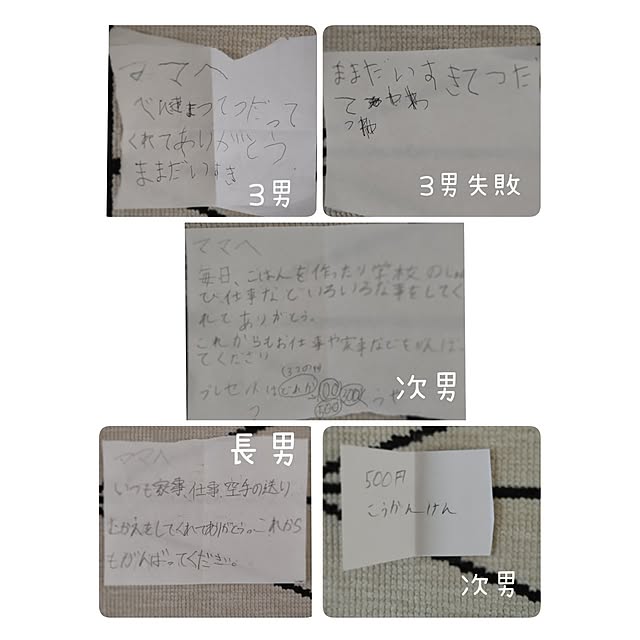 ママへ
べん強まつてつだって
くれてありがとう
ままだいすき
3男
ままだいすきてつだ
て
3男失敗
ママへ
毎日、ごはんを作ったり学校のじゅん
び仕事などいろいろな事をしてく
れてありがとう。
これからもお仕事や家事などをがんばっ
てください
プレゼントは どれか
次男
長男
ママへ
いつも家事、仕事、空手の送り
むかえをしてくれてありがとう。これから
もがんばってください。
500円
こうかんけん
次男